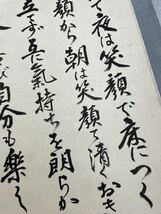 て夜は笑顔で床につく
顔から朝は笑顔で清くおき
立ず互に氣持ちを朗らか
び自分も樂し